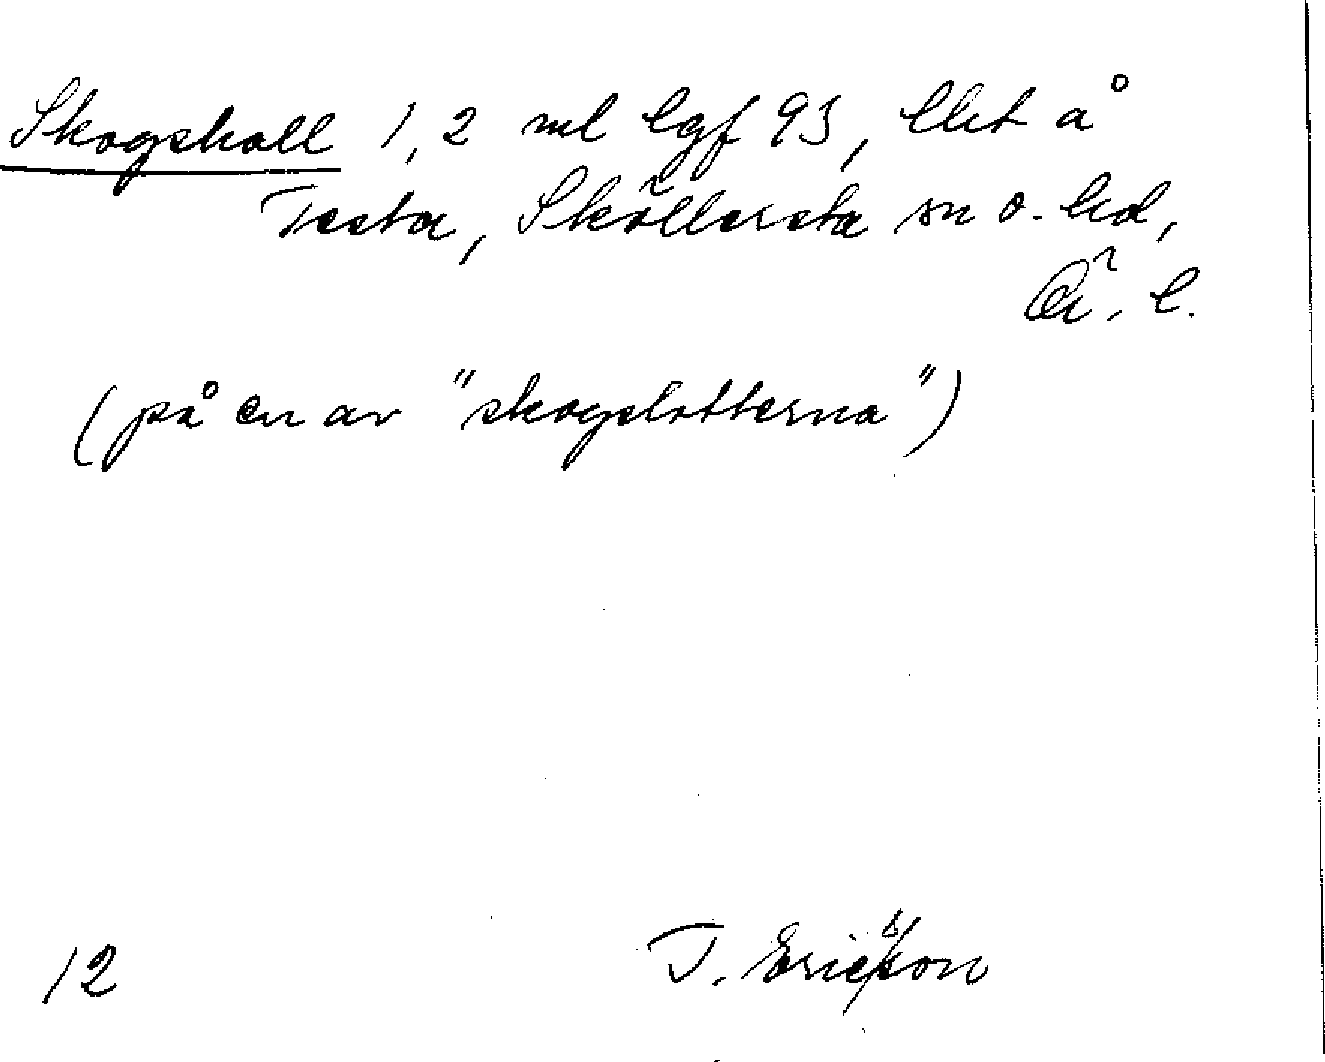 Skogshall 1,2 ml lgf 93, Ebet å
Testa, Sköllersta sn o. hd,
Ör. l.
(på en av "skogslotterna")
12 T. Ericsson